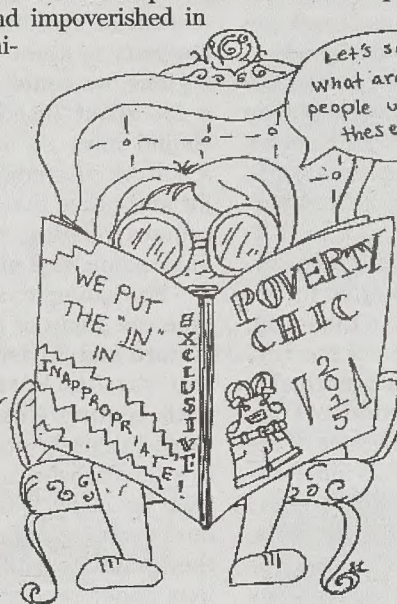 nd impoverished in
ni-
Let's s
what are
people u
these
WE PUT
THE "IN"
IN
INAPPROPRIATE!
EXCLUSIVE!
POVERTY
CHIC
2015